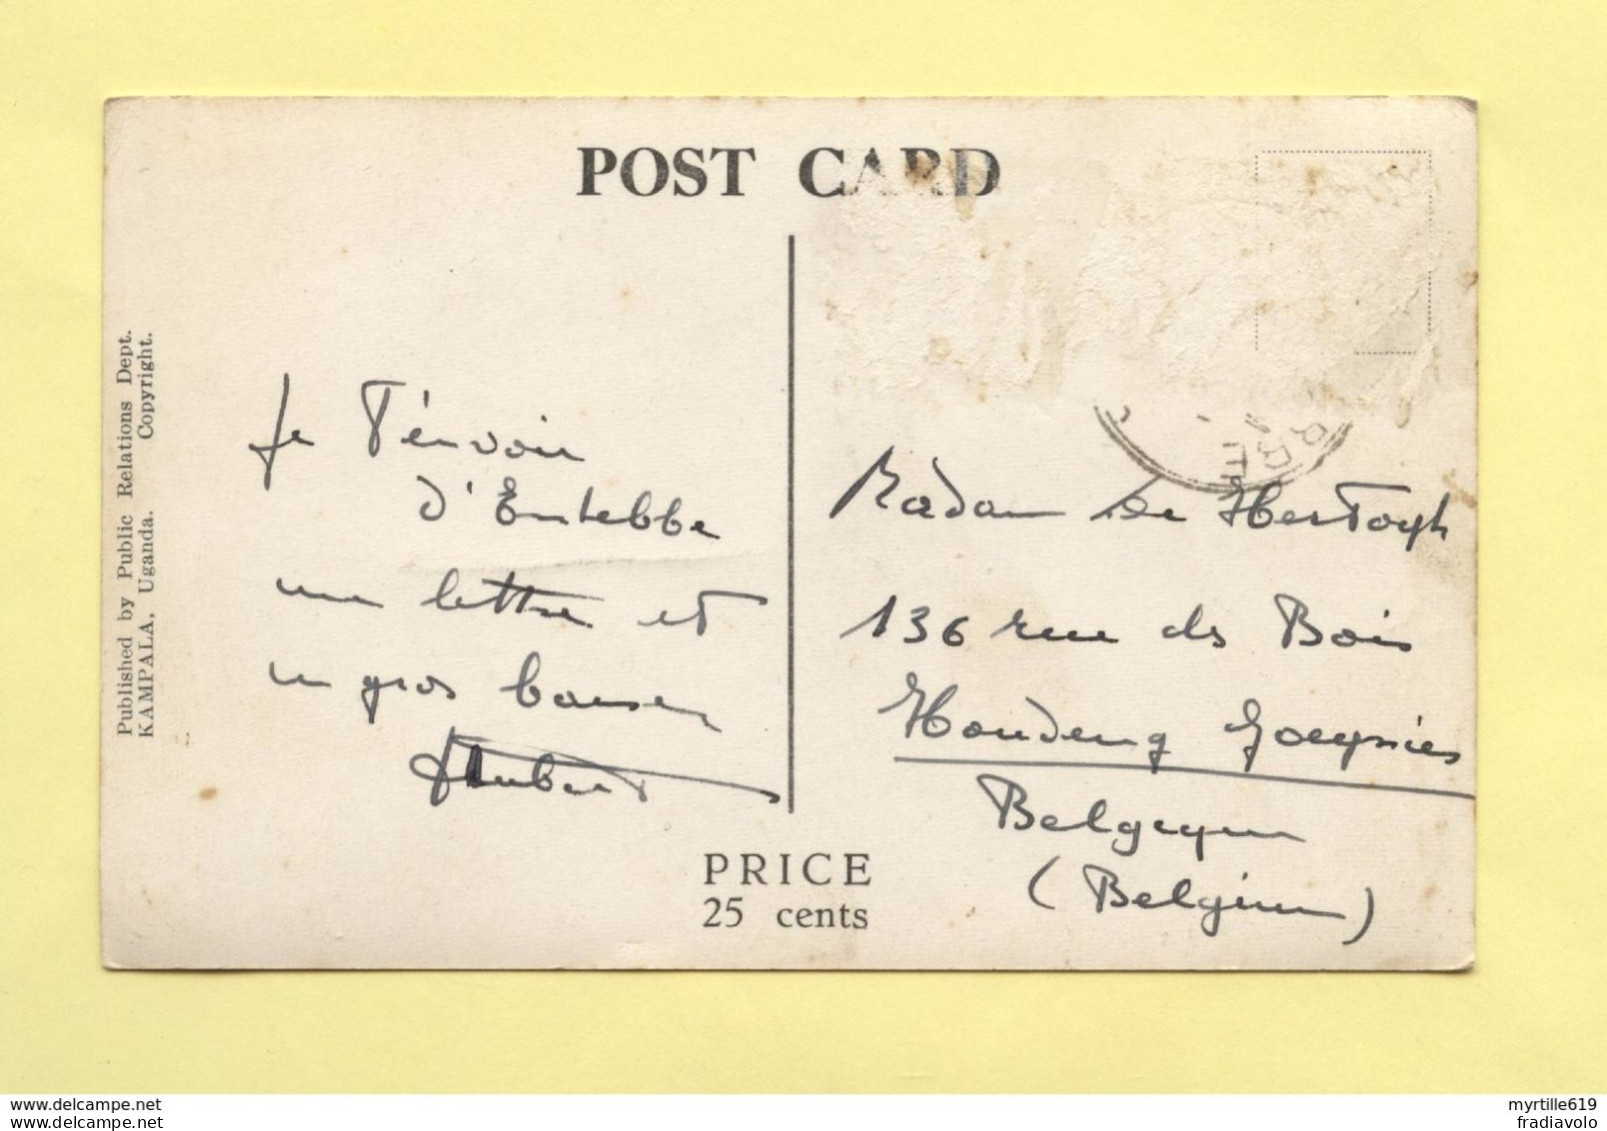 POST CARD
Published by Public Relations Dept.
KAMPALA, Uganda. Copyright.
Je t'envoie
d'Entebbe
une lettre et
un gros baiser
Hubert
Madame De Hertogh
136 rue des Bois
Houdeng Goegnies
Belgique
(Belgium)
PRICE
25 cents
www.delcampe.net
www.delcampe.net
myrtille619
fradiavolo